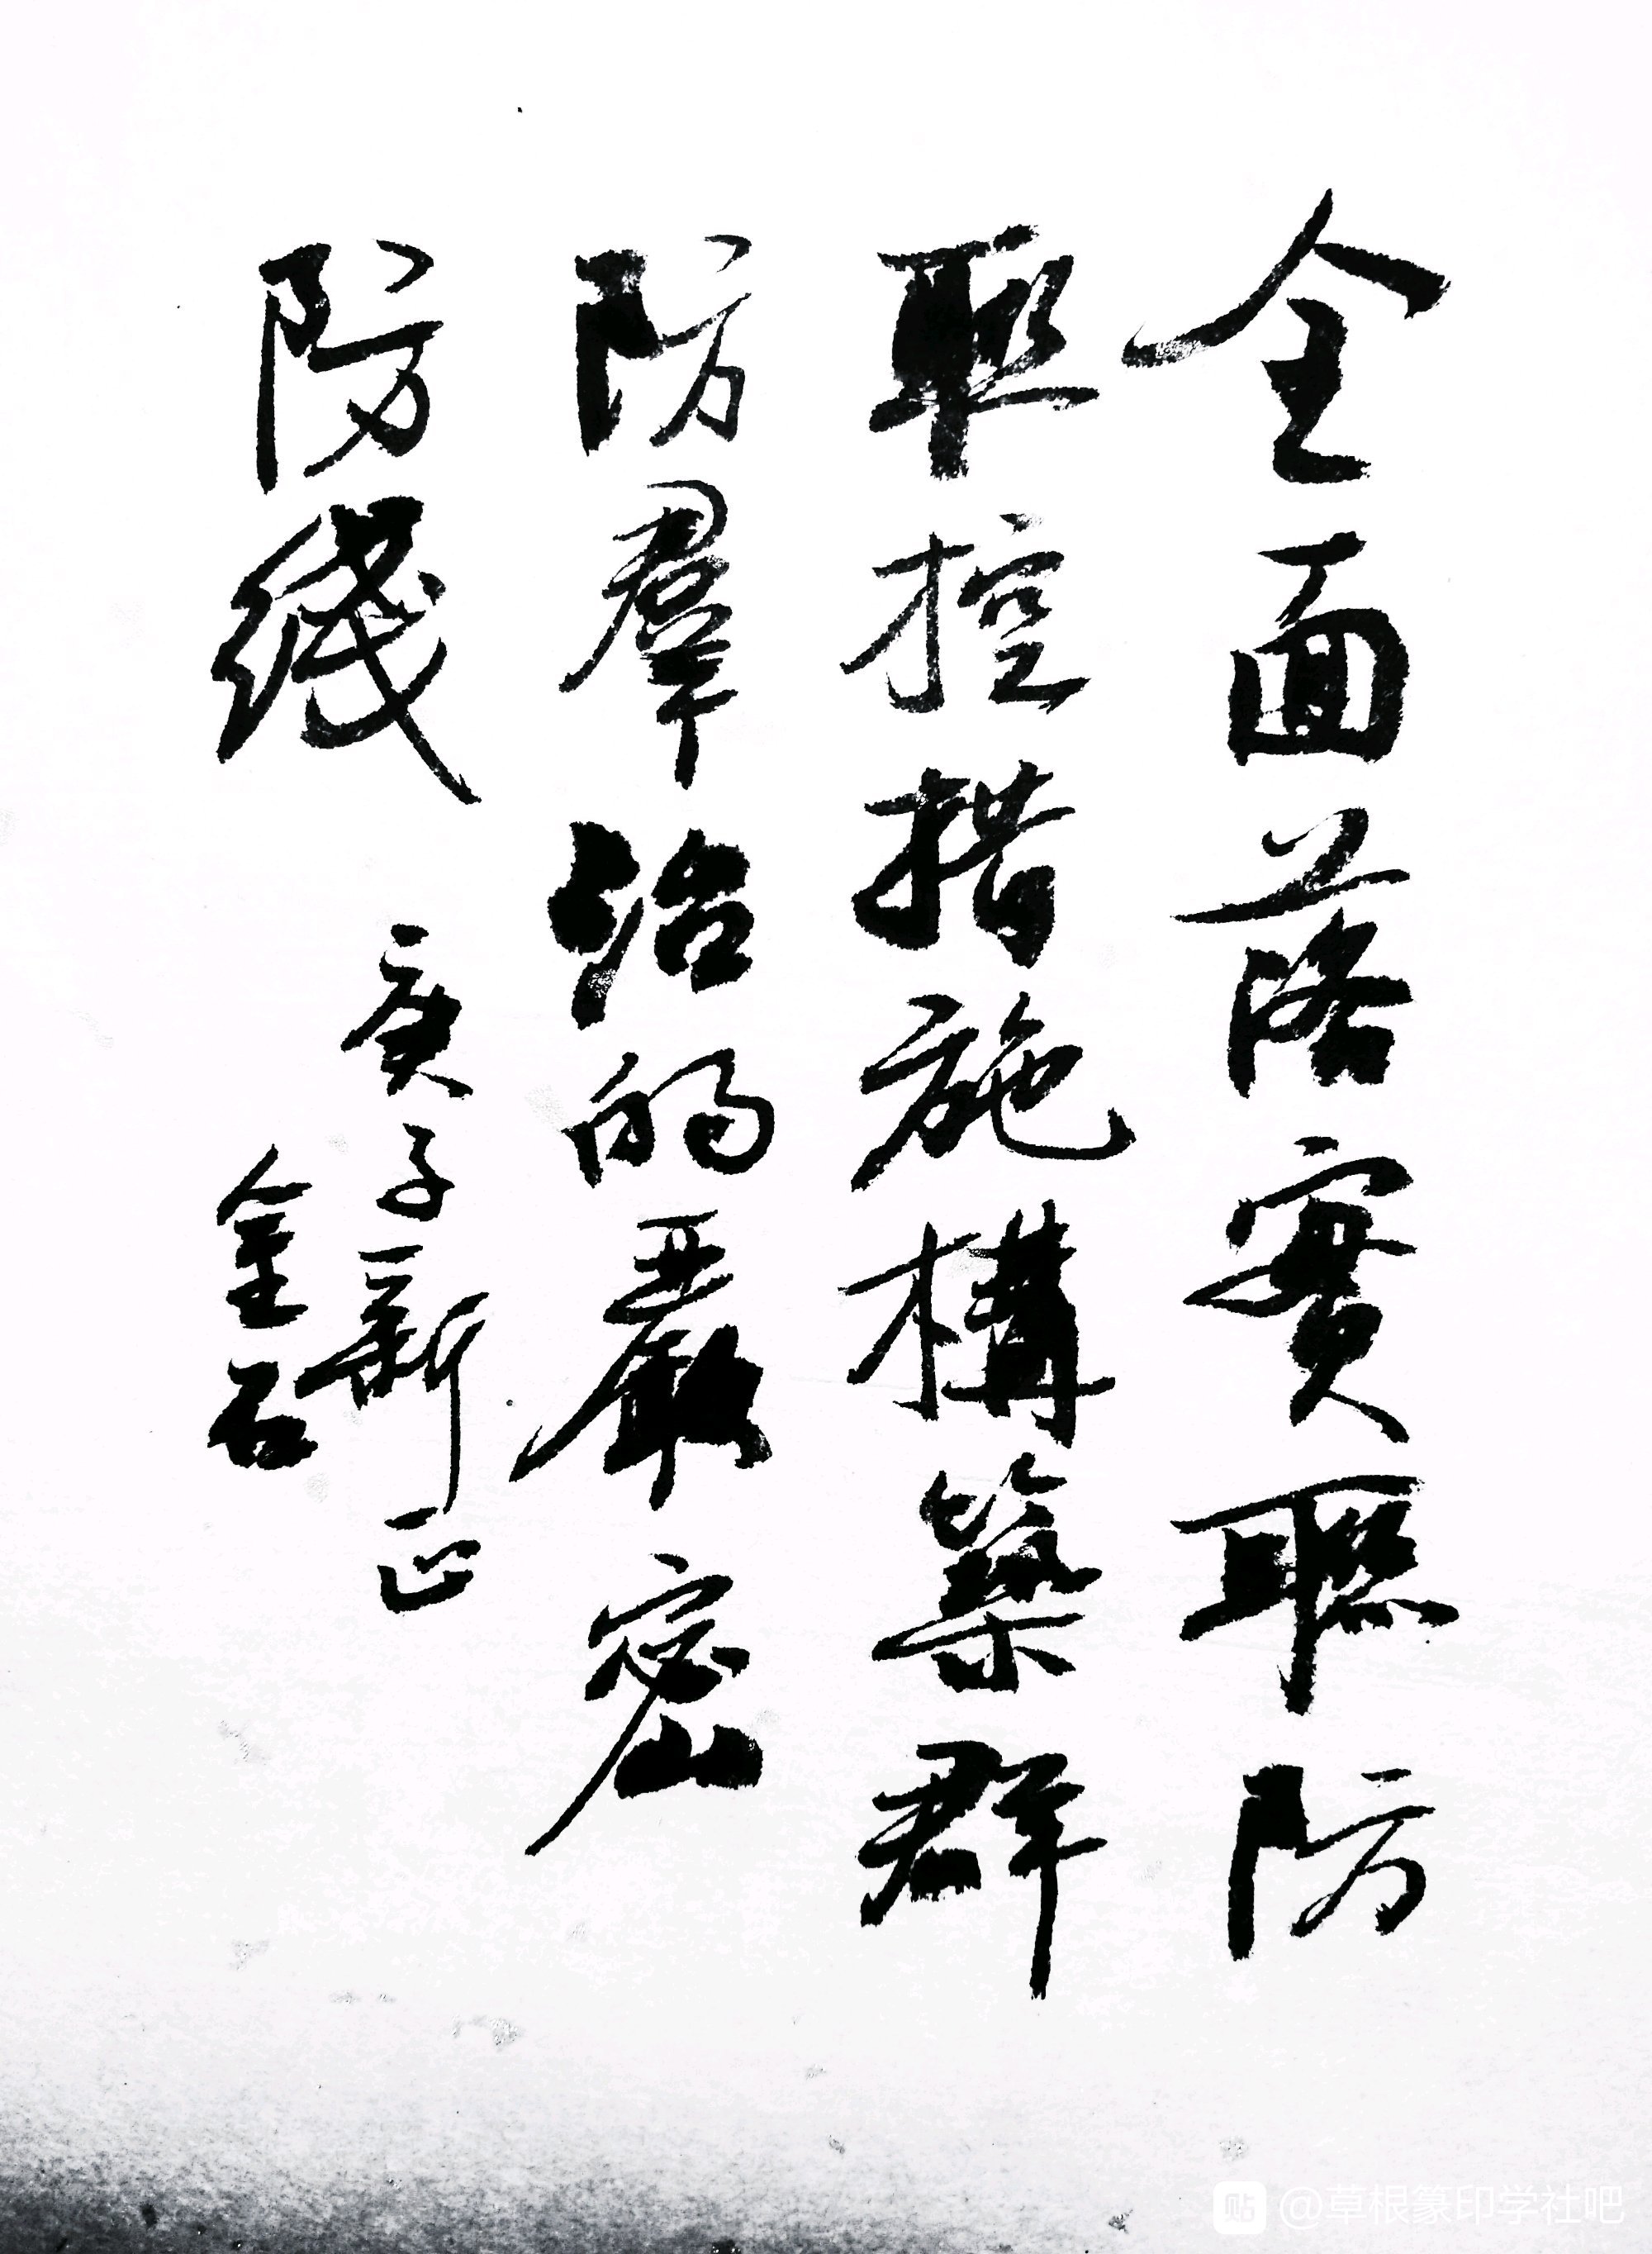 全面落實聯防
联控措施構築群
防羣治的嚴密
防线
庚子新正
金石
貼 @草根篆印学社吧